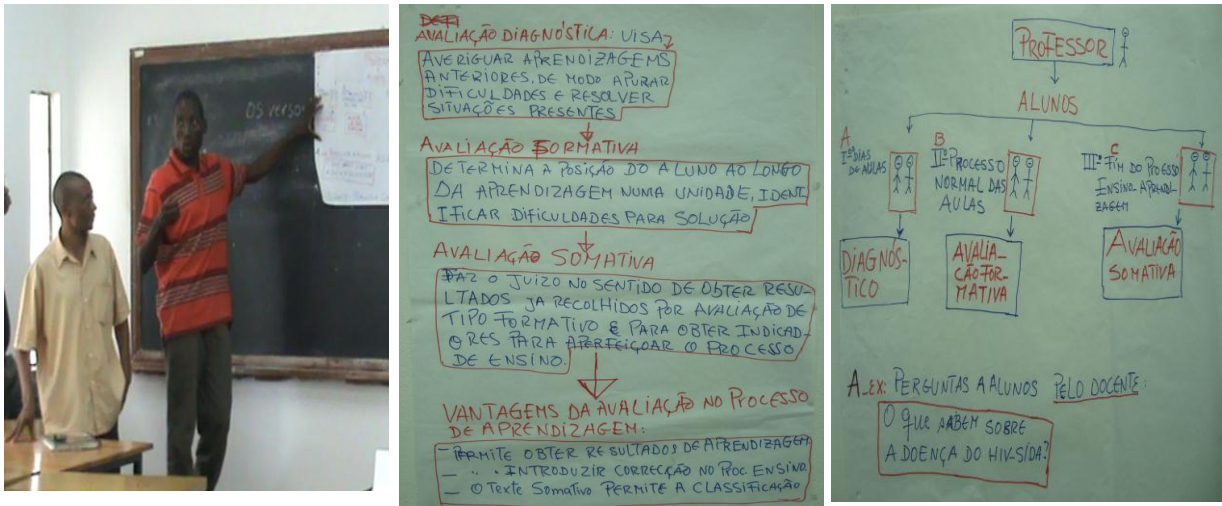 OS versos
DEFI
AVALIAÇÃO DIAGNÓSTICA: VISA
AVERIGUAR APRENDIZAGEMS
ANTERIORES, DE MODO APURAR
DIFICULDADES E RESOLVER
SITUAÇÕES PRESENTES
AVALIAÇÃO FORMATIVA
DETERMINA A POSIÇÃO DO ALUNO AO LONGO
DA APRENDIZAGEM NUMA UNIDADE, IDENT
IFICAR DIFICULDADES PARA SOLUÇÃO
AVALIAÇÃO SOMATIVA
FAZ O JUIZO NO SENTIDO DE OBTER RESU-
LTADOS JA RECOLHIDOS POR AVALIAÇÃO DE
TIPO FORMATIVO E PARA OBTER INDICAD-
ORES PARA APERFEIÇOAR O PROCESSO
DE ENSINO.
VANTAGEMS DA AVALIAÇÃO NO PROCESSO
DE APRENDIZAGEM:
- PERMITE OBTER RESULTADOS DE APRENDIZAGEM
- " " INTRODUZIR CORRECÇÃO NO PROC. ENSINO.
- O Texte Somativo PERMITE A CLASSIFICAÇÃO
PROFESSOR
ALUNOS
A
Iº DIAS
DE AULAS
B
IIº PROCESSO
NORMAL DAS
AULAS
C
IIIº FIM DO PROCESSO
ENSINO APRENDI-
ZAGEM
DIAGNÓS-
TICO
AVALIA-
ÇÃO FOR-
MATIVA
AVALIAÇÃO
SOMATIVA
A_EX: PERGUNTAS A ALUNOS PELO DOCENTE:
O QUE SABEM SOBRE
A DOENÇA DO HIV-SIDA?